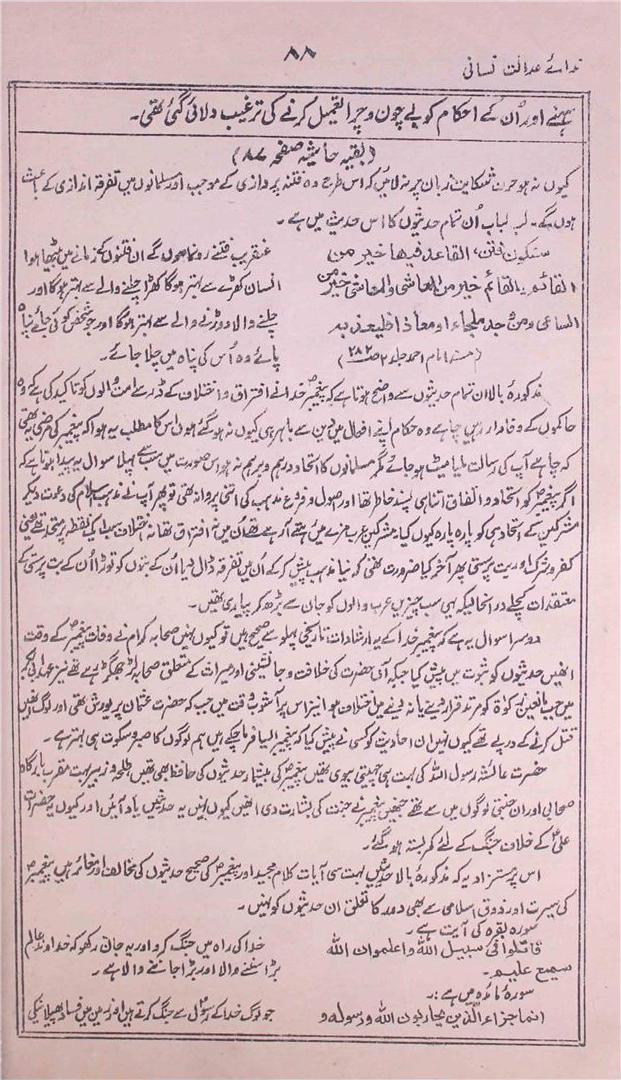 ۸۸
ندائے عدالت انسانی
رہنے اور اُن کے احکام کو بے چون و چرا تعمیل کرنے کی ترغیب دلائی گئی تھی۔
(بقیہ حاشیہ صفحہ ۸۷)
کیوں نہ ہو حرف شکایت زبان پر نہ لائیں کہ اس طرح وہ فتنہ پردازی کے موجب اور مسلمانوں میں تفرقہ اندازی کے باعث
ہوں گے۔ لب لباب اُن تمام حدیثوں کا اس حدیث میں ہے۔
ستکون فتن، القاعد فیھا خیر من
القائم والقائم خیر من الماشی والماشی خیر من
الساعی ومن وجد ملجاء او معاذا فلیعذ بہ
(مسند امام احمد جلد ۲ صـ ۲۸۲)
عنقریب فتنے رونما ہوں گے ان فتنوں کے زمانے میں بیٹھا ہوا
انسان کھڑے سے بہتر ہوگا کھڑا چلنے والے سے بہتر ہوگا اور
چلنے والا دوڑنے والے سے بہتر ہوگا اور جو شخص کوئی جائے پناہ
پائے وہ اُس کی پناہ میں چلا جائے۔
مذکورۂ بالا ان تمام حدیثوں سے واضح ہوتا ہے کہ پیغمبرؐ خدا نے افتراق و اختلاف کے ڈر سے امت والوں کو تاکید کی ہے کہ وہ
حاکموں کے وفادار رہیں چاہے وہ حکام اپنے افعال میں دین سے باہر ہی کیوں نہ ہو گئے ہوں اس کا مطلب یہ ہوا کہ پیغمبر کی مرضی یہ تھی
کہ چاہے آپ کی رسالت ملیا میٹ ہو جائے مگر مسلمانوں کا اتحاد درہم و برہم نہ ہو اس صورت میں سب سے پہلا سوال یہ پیدا ہوتا ہے کہ
اگر پیغمبرؐ کو اتحاد و اتفاق اتنا ہی پسند خاطر تھا اور اصول و فروع مذہب کی اتنی پروا نہ تھی تو پھر آپ نے مذہب اسلام کی دعوت دیکر
مشرکین کے اتحاد ہی کو پارہ پارہ کیوں کیا، مشرکین عرب مزے میں رہتے آ رہے تھے اُن میں نہ افتراق تھا نہ اختلاف سب ایک نقطہ پر متحد تھے یعنی
کفر و شرک اور بت پرستی پھر آخر کیا ضرورت تھی کہ نیا مذہب پیش کر کے اُن میں تفرقہ ڈال دیا اُن کے بتوں کو توڑا اُن کے بت پرستی کے
معتقدات کچلے درانحالیکہ یہی سب چیزیں عرب والوں کو جان سے بڑھ کر پیاری تھیں۔
دوسرا سوال یہ ہے کہ پیغمبرؐ خدا کے یہ ارشادات تاریخی پہلو سے صحیح ہیں تو کیوں نہیں صحابہ کرام نے وفات پیغمبرؐ کے وقت
انھیں حدیثوں کو ثبوت میں پیش کیا جبکہ آں حضرت کی خلافت و جانشینی اور میراث کے متعلق صحابہ لڑ جھگڑ رہے تھے نیز عہد ابی بکر
میں جب مانعین زکوٰۃ کو مرتد قرار دینے یا نہ دینے میں اختلاف ہوا نیز اس پر آشوب وقت میں جب کہ حضرت عثمان پر یورش تھی اور لوگ انھیں
قتل کرنے کے درپے تھے کیوں نہیں ان احادیث کو کسی نے پیش کیا کہ پیغمبرؐ ایسا فرما چکے ہیں ہم لوگوں کا صبر و سکوت ہی بہتر ہے۔
حضرت عائشہ رسول اللہ کی بہت ہی چہیتی بیوی تھیں پیغمبرؐ کی بیشمار حدیثوں کی حافظ بھی تھیں، طلحہ و زبیر بہت مقرب بارگاہ
صحابی اور ان جنتی لوگوں میں سے تھے جنھیں پیغمبرؐ نے جنت کی بشارت دی انھیں کیوں نہیں یہ حدیثیں یاد آئیں اور کیوں یہ حضرات
علیؑ کے خلاف جنگ کے لئے کمر بستہ ہو گئے۔
اس پر مستزاد یہ کہ مذکورۂ بالا حدیثیں بہت سی آیات کلام مجید اور پیغمبرؐ کی صحیح حدیثوں کی مخالف اور مغائر ہیں پیغمبرؐ
کی سیرت اور ذوق اسلامی سے بھی دور کا تعلق ان حدیثوں کو نہیں۔
سورہ بقرہ کی آیت ہے۔
قاتلوا فی سبیل اللہ واعلموا ان اللہ
سمیع علیم۔
خدا کی راہ میں جنگ کرو اور یہ جان رکھو کہ خداوند عالم
بڑا سننے والا اور بڑا جاننے والا ہے۔
سورۂ مائدہ میں ہے:۔
انما جزاء الذین یحاربون اللہ ورسولہ و
جو لوگ خدا کے رسول سے جنگ کرتے ہیں اور زمین میں فساد پھیلانیکی